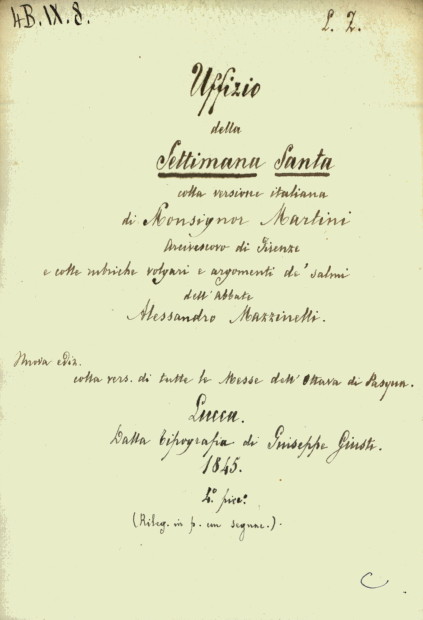 4B. IX. 8.
L. Z.
Uffizio
della
Settimana Santa
colla versione italiana
di Monsignor Martini
Arcivescovo di Firenze
e colle rubriche volgari e argomenti de' salmi
dell'Abbate
Alessandro Mazzinelli.
Nuova ediz.
colla vers. di tutte le Messe dell'Ottava di Pasqua.
Lucca.
Dalla Tipografia di Giuseppe Giusti.
1845.
(Rileg. in p. con segnac.).
C